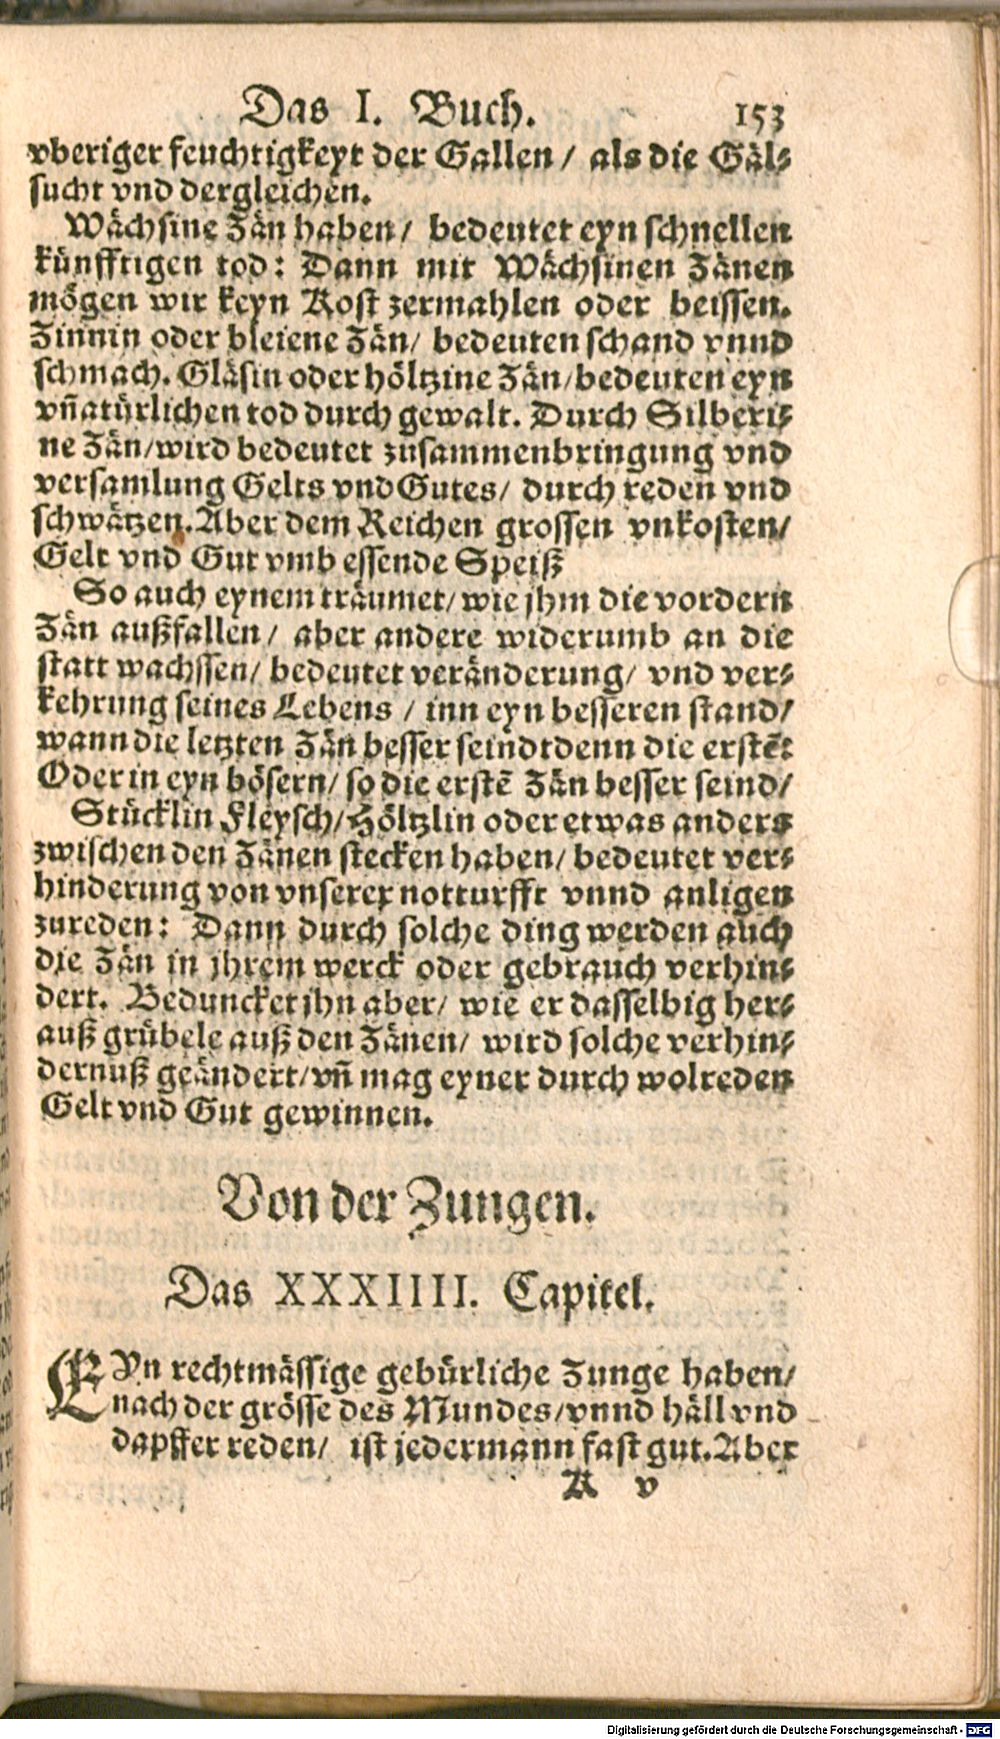 Das I. Buch. 153
vberiger feuchtigkeyt der Gallen / als die Gäl⸗
sucht vnd dergleichen.
Wächsine Zän haben / bedeutet eyn schnellen
künfftigen tod: Dann mit Wächsinen Zänen
mögen wir keyn Kost zermahlen oder beissen.
Zinnin oder bleiene Zän / bedeuten schand vnnd
schmach. Gläsin oder höltzine Zän / bedeuten eyn
vñatürlichen tod durch gewalt. Durch Silberi⸗
ne Zän / wird bedeutet zusammenbringung vnd
versamlung Gelts vnd Gutes / durch reden vnd
schwätzen. Aber dem Reichen grossen vnkosten /
Gelt vnd Gut vmb essende Speiß
So auch eynem träumet / wie jhm die vordern
Zän außfallen / aber andere widerumb an die
statt wachssen / bedeutet veränderung / vnd ver⸗
kehrung seines Lebens / inn eyn besseren stand /
wann die letzten Zän besser seindt denn die erstē:
Oder in eyn bösern / so die erstē Zän besser seind /
Stücklin Fleysch / Höltzlin oder etwas anders
zwischen den Zänen stecken haben / bedeutet ver⸗
hinderung von vnserer notturfft vnnd anligen
zureden: Dann durch solche ding werden auch
die Zän in jhrem werck oder gebrauch verhin⸗
dert. Beduncket jhn aber / wie er dasselbig her⸗
auß grübele auß den Zänen / wird solche verhin⸗
dernuß geändert / vñ mag eyner durch wolreden
Gelt vnd Gut gewinnen.
Von der Zungen.
Das XXXIIII. Capitel.
EYn rechtmässige gebürliche Zunge haben /
nach der grösse des Mundes / vnnd häll vnd
dapffer reden / ist jedermann fast gut. Aber
K v
Digitalisierung gefördert durch die Deutsche Forschungsgemeinschaft - DFG